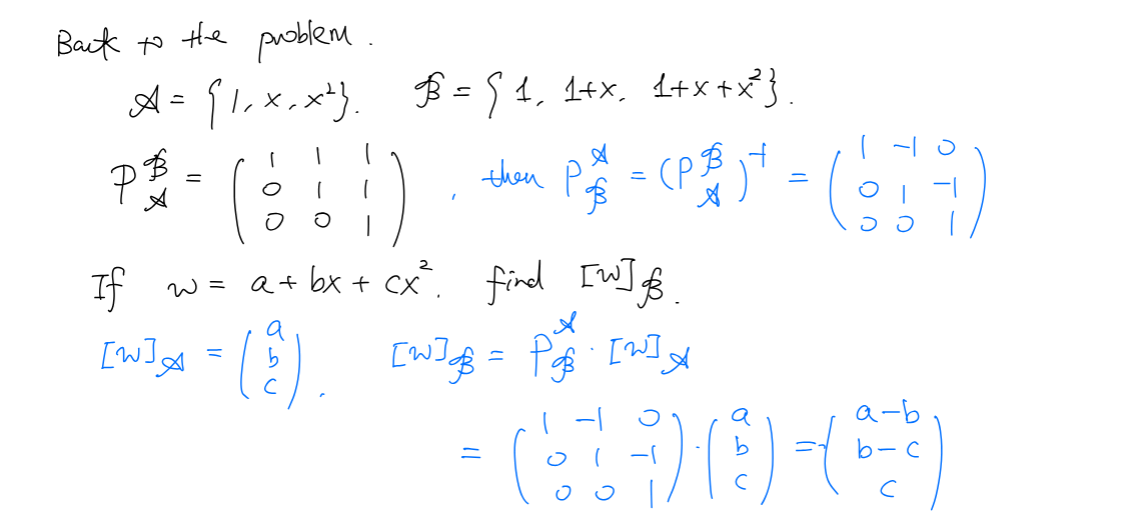 Back to the problem.
𝒜 = {1, x, x²}. ℬ = {1, 1+x, 1+x+x²}.
P_𝒜^ℬ = (1 1 1; 0 1 1; 0 0 1), then P_ℬ^𝒜 = (P_𝒜^ℬ)^-1 = (1 -1 0; 0 1 -1; 0 0 1)
If w = a + bx + cx². find [w]_ℬ.
[w]_𝒜 = (a; b; c). [w]_ℬ = P_ℬ^𝒜 · [w]_𝒜
= (1 -1 0; 0 1 -1; 0 0 1) · (a; b; c) = (a-b; b-c; c)